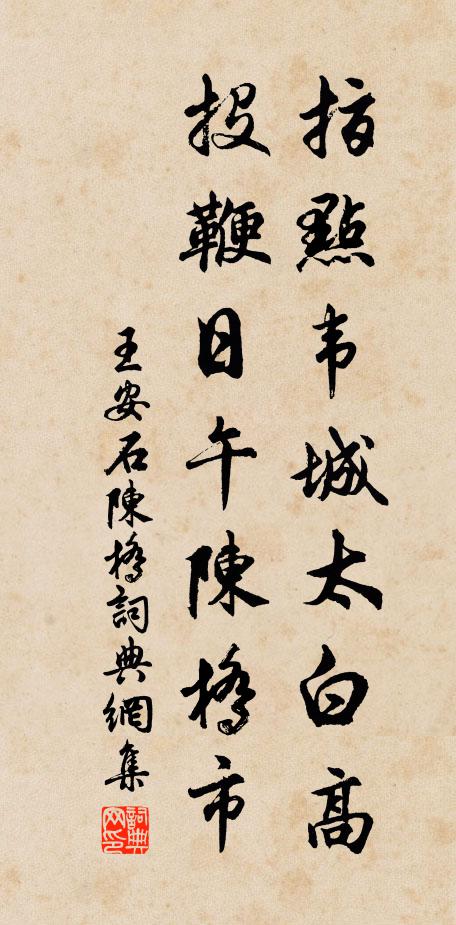 指點韦城太白高
投鞭日午陳橋市
王安石陳橋詞典網集
詞典网印